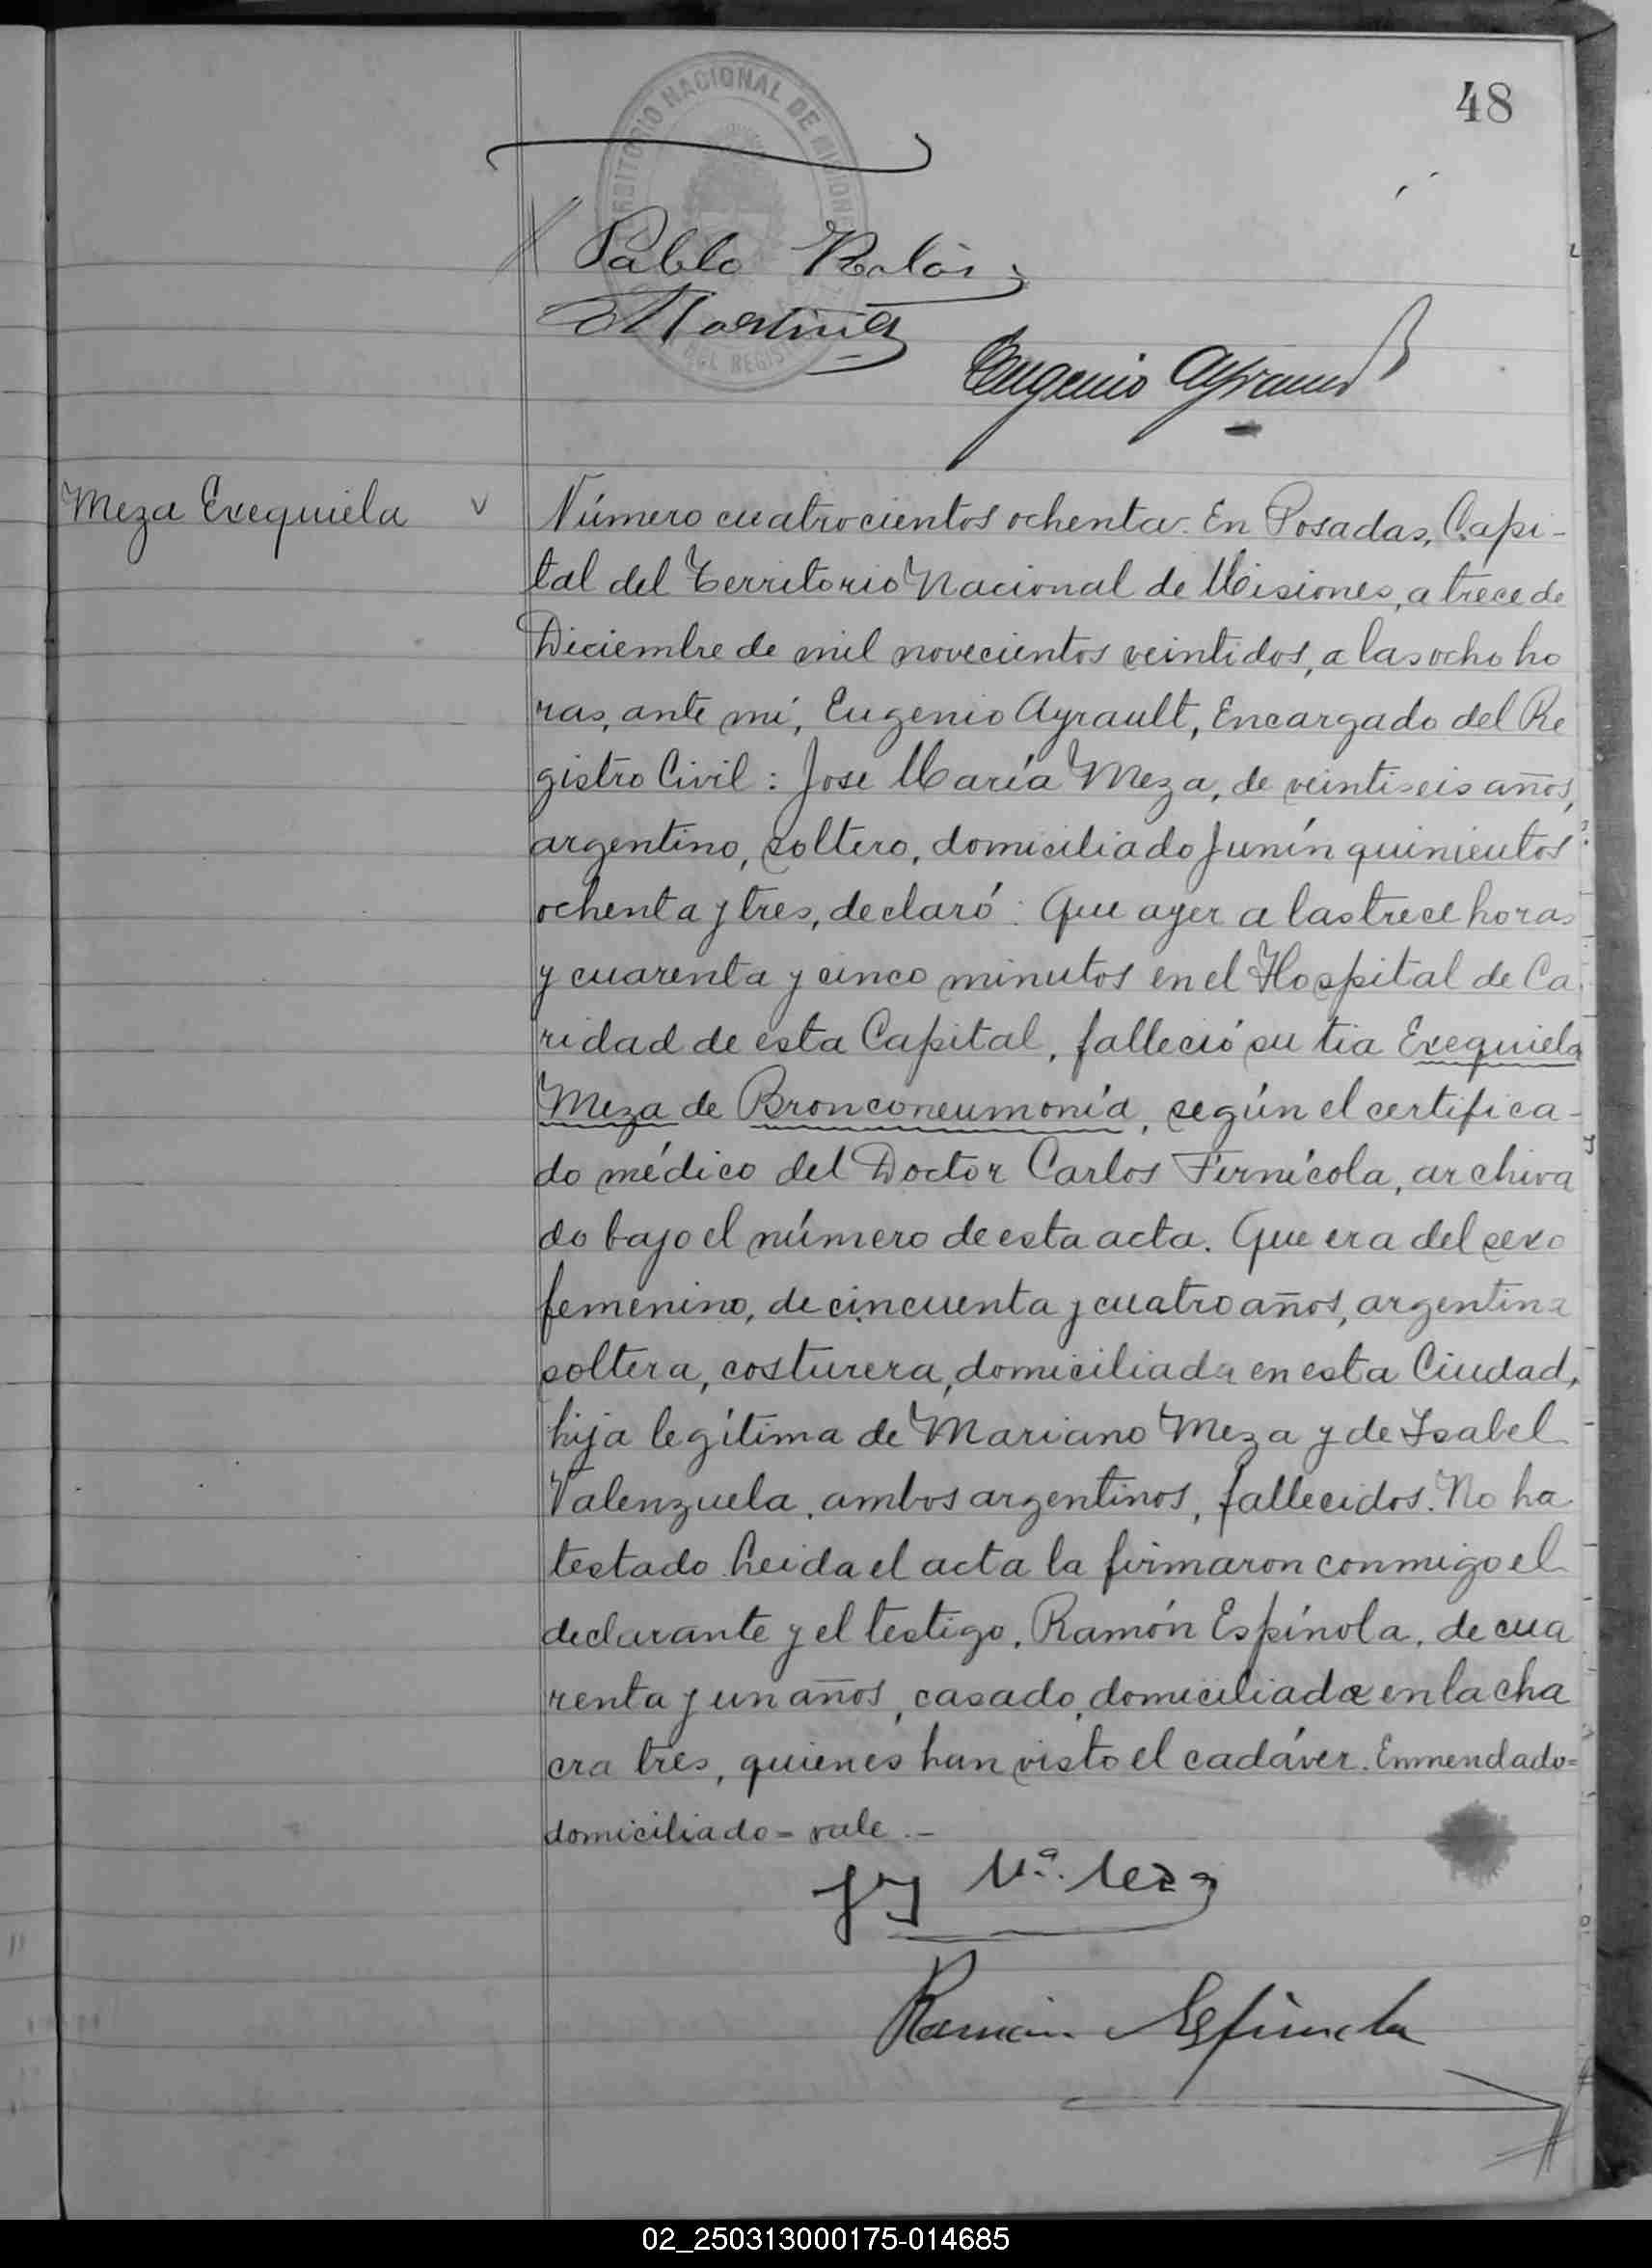 48
TERRITORIO NACIONAL DE MISIONES
Pablo
Martínez
Eugenio Ayrault
Meza Exequiela v Número cuatrocientos ochenta. En Posadas, Capi-
tal del Territorio Nacional de Misiones, a trece de
Diciembre de mil novecientos veintidos, a las ocho ho
ras, ante mí, Eugenio Ayrault, Encargado del Re
gistro Civil: Jose María Meza, de veintiseis años,
argentino, soltero, domiciliado Junín quinientos
ochenta y tres, declaró: Que ayer a las trece horas
y cuarenta y cinco minutos en el Hospital de Ca
ridad de esta Capital, falleció su tia Exequiela
Meza de Bronconeumonía, según el certifica-
do médico del Doctor Carlos Fernícola, archiva
do bajo el número de esta acta. Que era del sexo
femenino, de cincuenta y cuatro años, argentina
soltera, costurera, domiciliada en esta Ciudad,
hija legítima de Mariano Meza y de Isabel
Valenzuela, ambos argentinos, fallecidos. No ha
testado. Leida el acta la firmaron conmigo el
declarante y el testigo, Ramón Espínola, de cua
renta y un años, casado, domiciliado en la cha
cra tres, quienes han visto el cadáver. Enmendado=
domiciliado=vale.-
Mª. Meza
Ramón Espínola
02_250313000175-014685